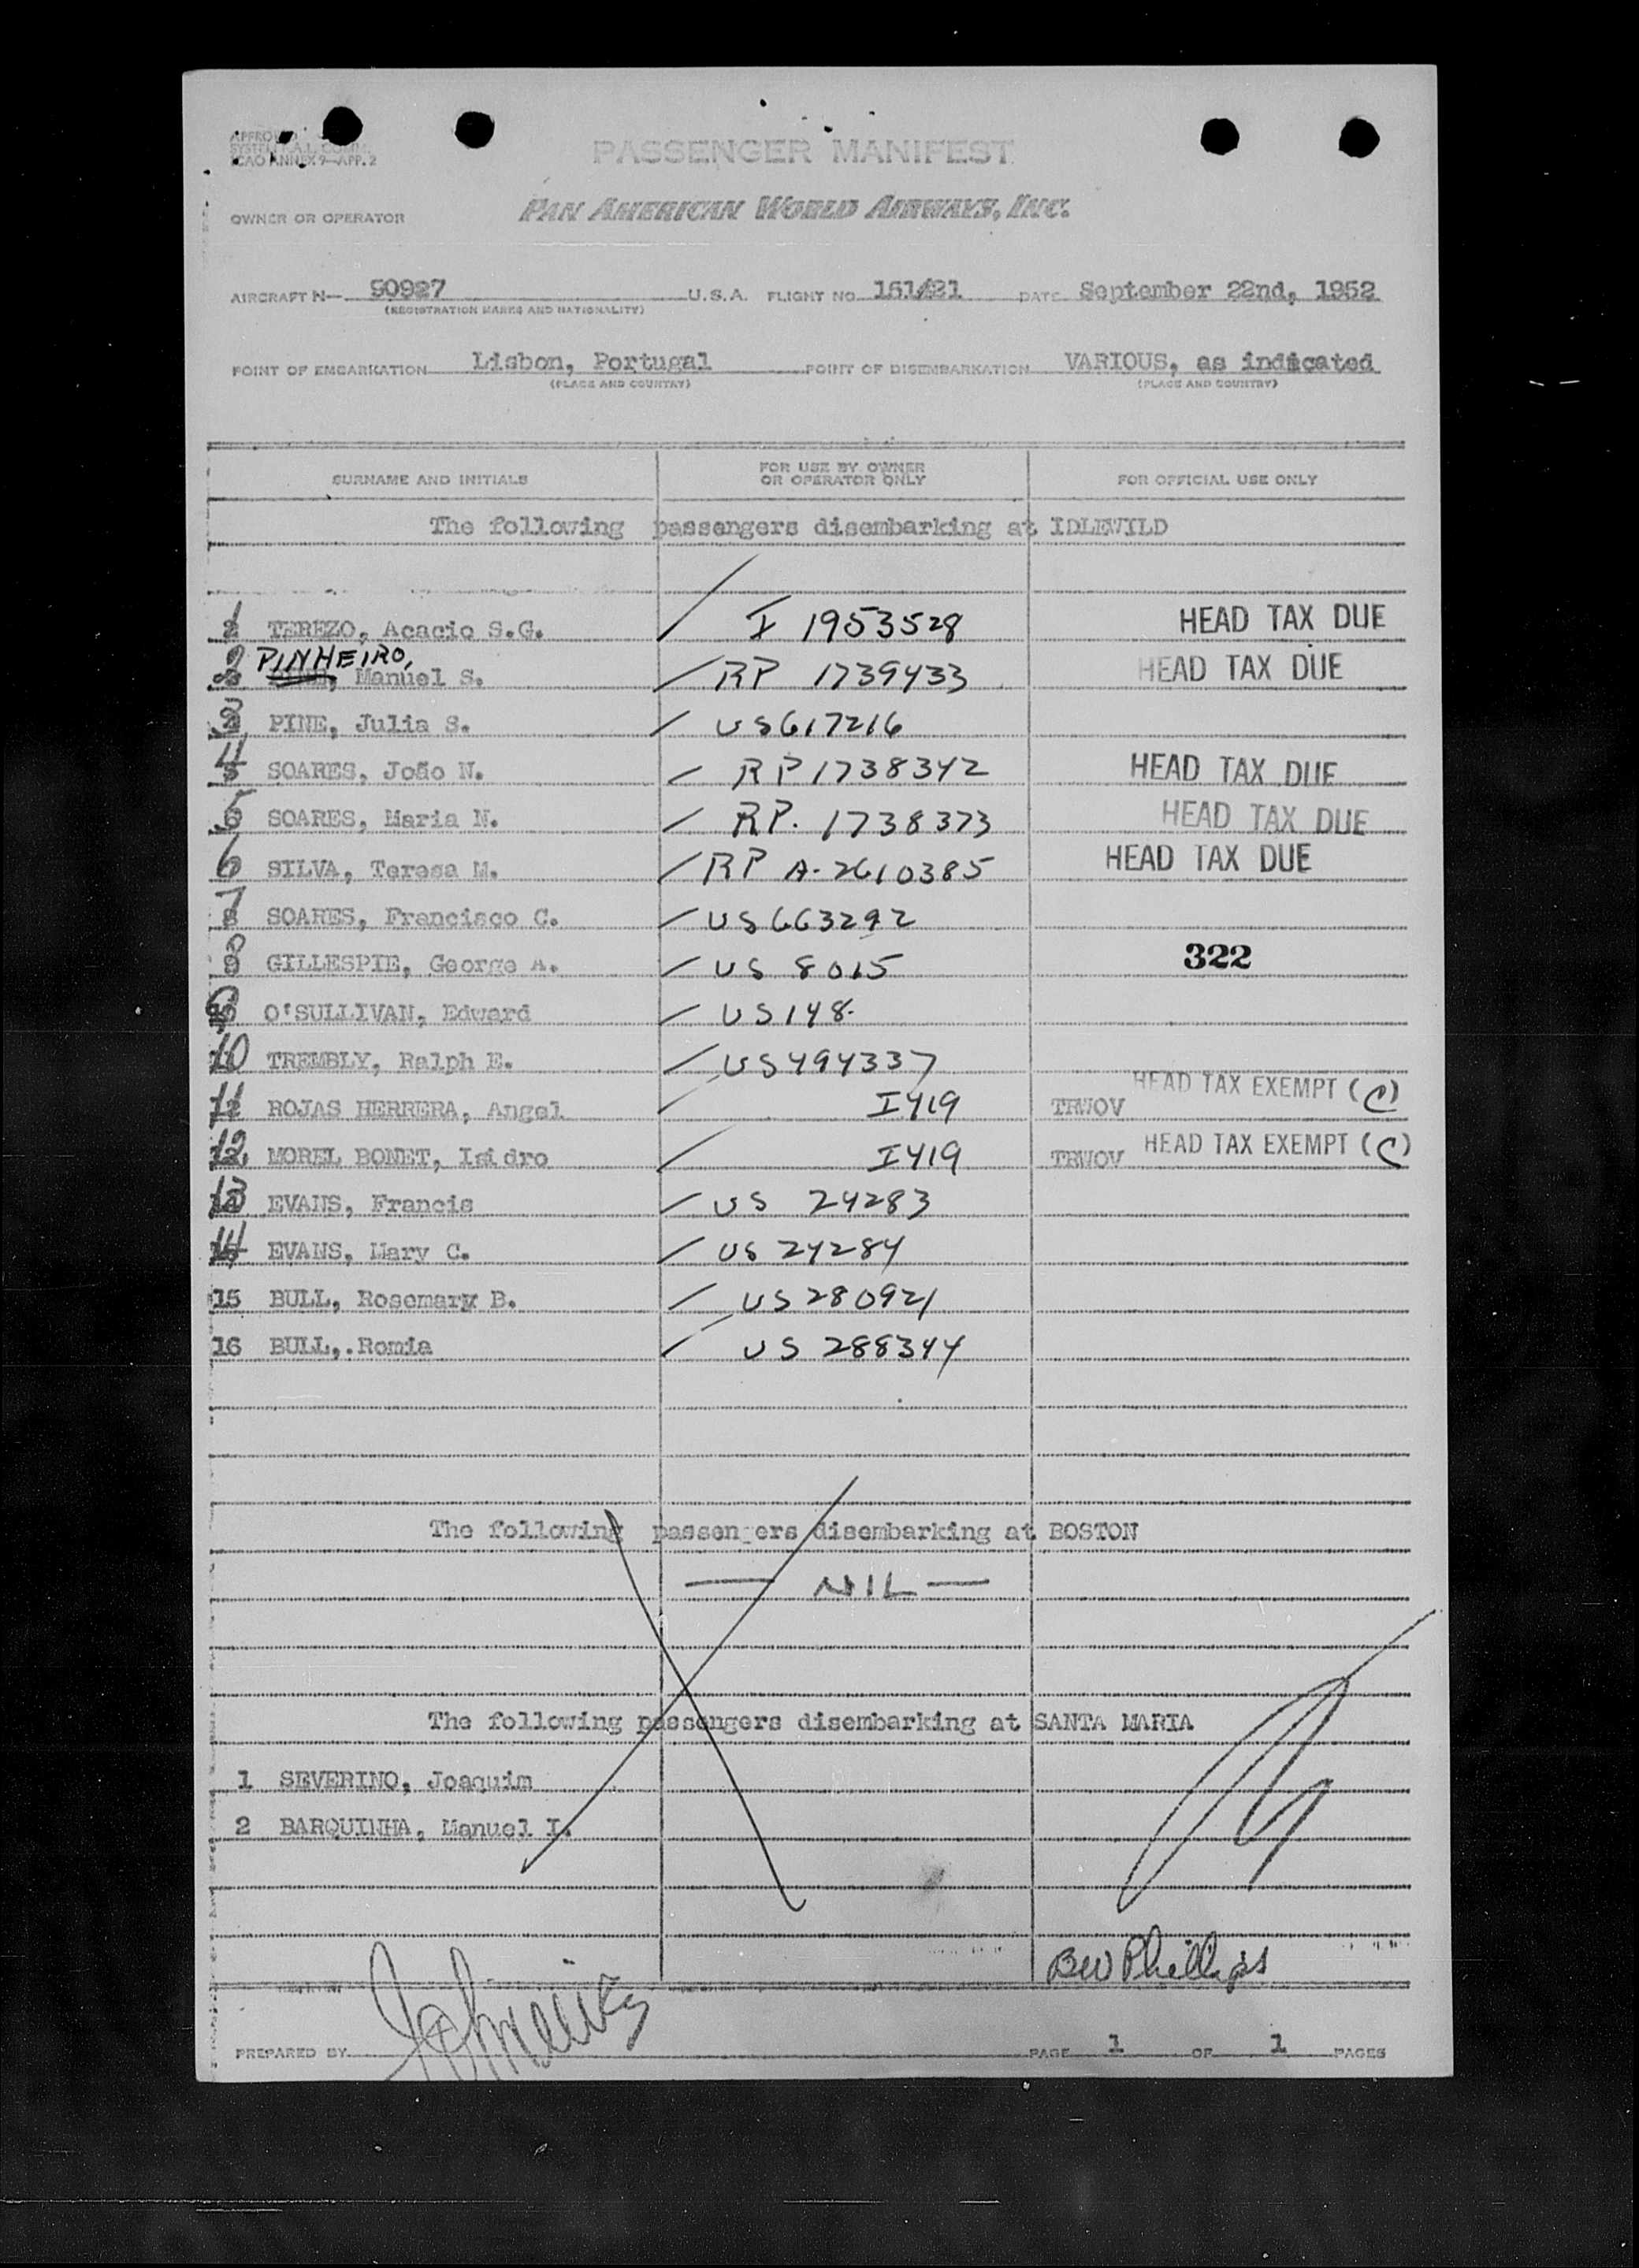 APPROVED
SYSTEM F.A.L. COMM.
ICAO ANNEX 9—APP. 2
PASSENGER MANIFEST
OWNER OR OPERATOR PAN AMERICAN WORLD AIRWAYS, INC.
AIRCRAFT N— 90927 U.S.A. FLIGHT NO. 151/121 DATE September 22nd, 1952
(REGISTRATION MARKS AND NATIONALITY)
POINT OF EMBARKATION Lisbon, Portugal POINT OF DISEMBARKATION VARIOUS, as indicated
(PLACE AND COUNTRY) (PLACE AND COUNTRY)
SURNAME AND INITIALS FOR USE BY OWNER OR OPERATOR ONLY FOR OFFICIAL USE ONLY
The following passengers disembarking at IDLEWILD
1 TEREZO, Acacio S.G. I 1953528 HEAD TAX DUE
2 PINHEIRO, Manuel S. RP 1739433 HEAD TAX DUE
3 PINE, Julia S. US617216
4 SOARES, João N. RP 1738342 HEAD TAX DUE
5 SOARES, Maria N. RP. 1738373 HEAD TAX DUE
6 SILVA, Teresa M. RP A-2610385 HEAD TAX DUE
7 SOARES, Francisco C. US 663292
8 GILLESPIE, George A. US 8015 322
9 O'SULLIVAN, Edward US148.
10 TREMBLY, Ralph E. US494337
11 ROJAS HERRERA, Angel I419 TRWOV HEAD TAX EXEMPT (C)
12 MOREL BONET, Isidro I419 TRWOV HEAD TAX EXEMPT (C)
13 EVANS, Francis US 24283
14 EVANS, Mary C. US 24284
15 BULL, Rosemary B. US 280921
16 BULL,.Romia US 288344
The following passengers disembarking at BOSTON
— NIL —
The following passengers disembarking at SANTA MARIA
1 SEVERINO, Joaquim
2 BARQUINHA, Manuel I.
BW Phillips
PREPARED BY PAGE 1 OF 1 PAGES